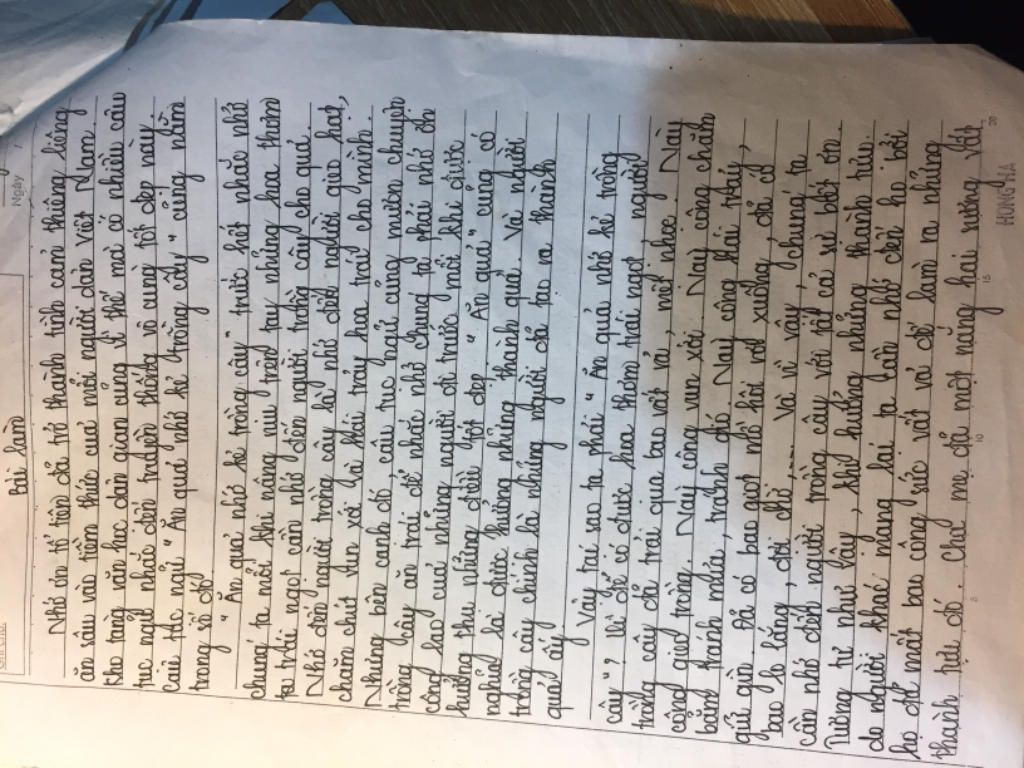 Ngày
Bài làm
Nhớ ơn tổ tiên đã trở thành tình cảm thiêng liêng
ăn sâu vào tiềm thức của mỗi người dân Việt Nam.
Kho tàng văn học dân gian cũng vì thế mà có nhiều câu
tục ngữ nhắc đến truyền thống vô cùng tốt đẹp này.
Câu tục ngữ "Ăn quả nhớ kẻ trồng cây" cũng nằm
trong số đó.
"Ăn quả nhớ kẻ trồng cây" trước hết nhắc nhở
chúng ta mỗi khi nâng niu trên tay những hoa thơm
trái ngọt cần nhớ đến người trồng cây cho quả.
Nhớ đến người trồng cây là nhớ đến người gieo hạt,
chăm chút vun xới và hái trảy hoa trái cho mình.
Nhưng bên cạnh đó, câu tục ngữ cũng mượn chuyện
trồng cây ăn trái để nhắc nhở chúng ta phải nhớ ơn
công lao của những người đi trước mỗi khi được
hưởng thụ những điều tốt đẹp. "Ăn quả" cũng có
nghĩa là được hưởng những thành quả. Và người
trồng cây chính là những người đã tạo ra thành
quả ấy.
Vậy tại sao ta phải "Ăn quả nhớ kẻ trồng
cây", vì để có được hoa thơm trái ngọt, người
trồng cây đã trải qua bao vất vả, mệt nhọc. Này
công gieo trồng. Này công vun xới. Này công chăm
bẵm tránh mưa, tránh gió. Này công hái trảy,
gìn giữ. Đã có bao giọt mồ hôi rơi xuống, đã có
bao lo lắng, đợi chờ.... Và vì vậy, chúng ta
cần nhớ đến người trồng cây với tất cả sự biết ơn.
Tương tự như vậy, khi hưởng những thành tựu
do người khác mang lại ta cần nhớ đến họ bởi
họ để mất bao công sức vất vả để làm ra những
thành tựu đó. Cha mẹ đã một nắng hai sương vất
5
10
15
20
HONG HA